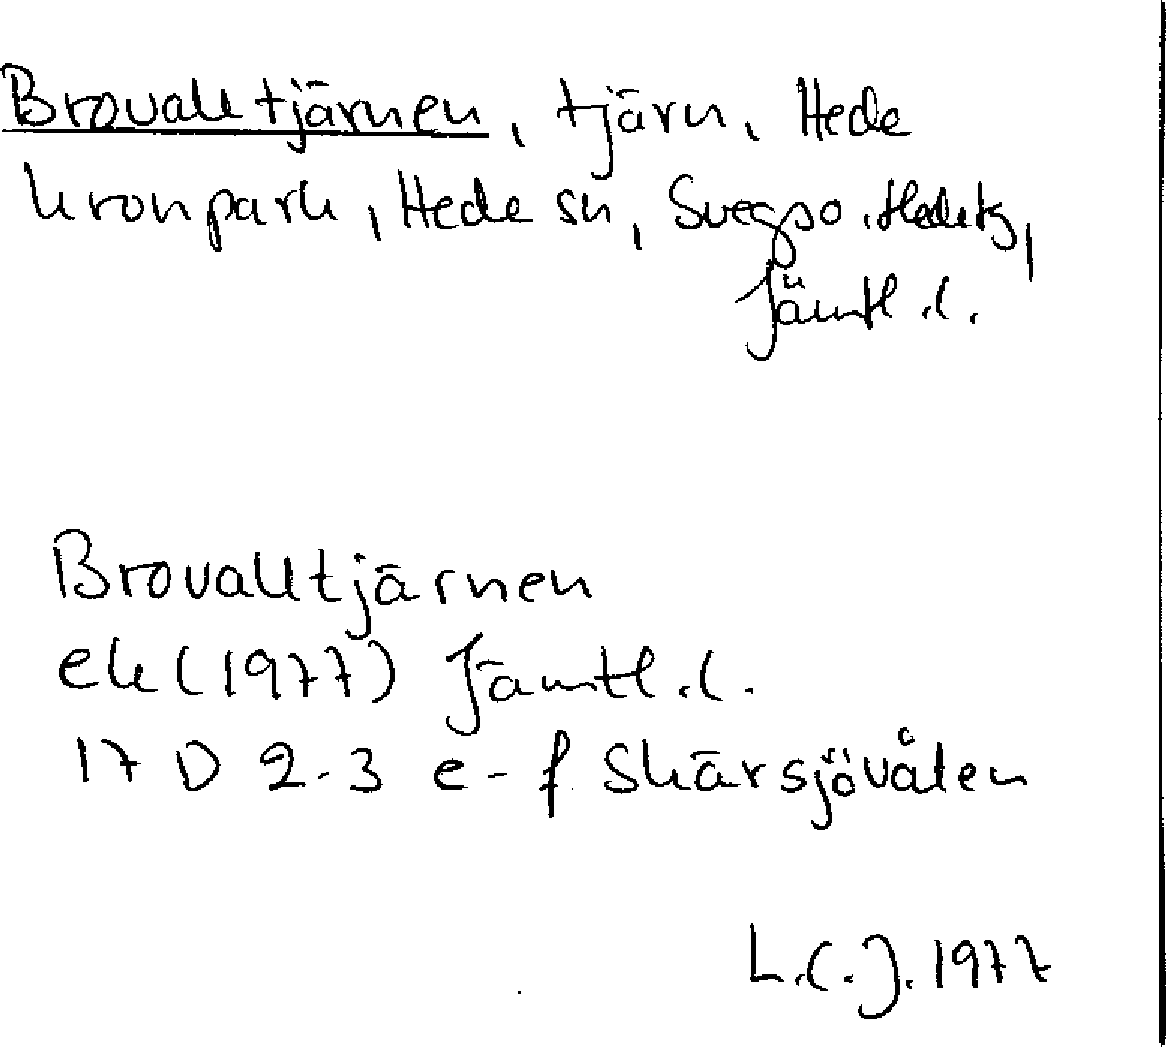 Brovalltjärnen, tjärn, Hede
kronpark, Hede sn, Svegs o. Hede
Jämtl. l.
Brovalltjärnen
ek (1977) Jämtl. l.
17 D 2-3 e-f Skärsjövålen
L.C.J. 1977